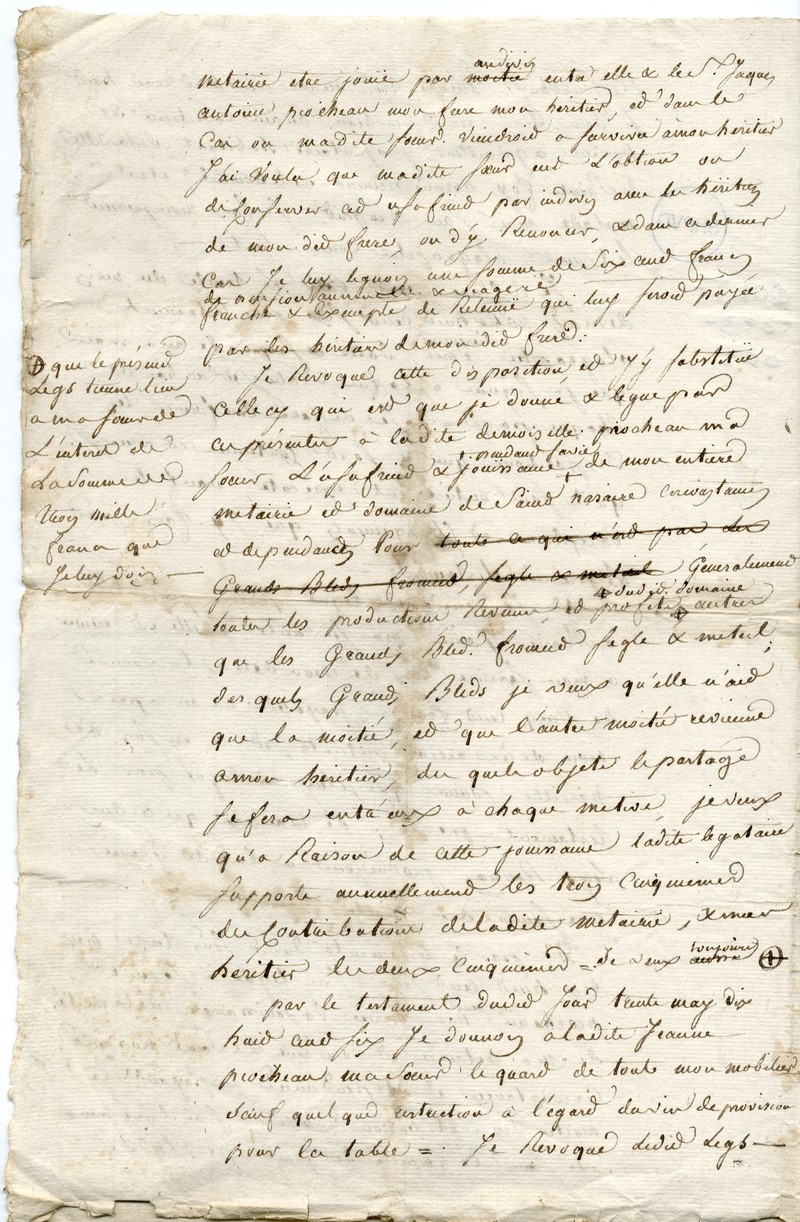 andivis
metairie etre jouie par moitié entre elle & le Sr. Jaques
antoine piocheau mon frere mon heritier, et dans le
Cas ou madite soeur viendroit a survivre a mon heritier
J'ai voulu que madite soeur eut L'obtion ou
de Conserver cet usufruit par indivis avec les héritiers
de mon dit frere, ou d'y Renoncer, & dans ce dernier
Cas Je luy leguois une somme de six cent francs
de pension annuelle & viagere
franche & Exempte de Retenüe qui luy seroit payée
par les héritiers de mon dit frere.
Je Revoque cette disposition et j'y substitüe
celle cy qui est que je donne & legue par
ces présentes à ladite demoiselle piocheau ma
pendant sa vie
soeur L'usufruit & jouissance de mon entiere
metairie et domaine de Saint nazaire circonstances
et dependances Pour toute ce qui n'est pas des
Grands Bleds froment, segle & meteil Généralement
dudit domaine
toutes les productions Revenus et profits autres
que les Grands Bleds froment segle & meteil;
des quels Grands Bleds je veux qu'elle n'aid
que la moitié, et que l'autre moitié revienne
a mon héritier, des quels objets le partage
se fera entre eux à chaque metive, je veux
qu'a Raison de cette jouissance ladite legataire
supporte annuellement les trois cinquiemes
des Contributions de ladite metairie, & mon
toujours
héritier les deux cinquiemes =. Je veux aussi ⊕
par le testament dudit Jour trente may dix
huit cent six Je donnois à ladite Jeanne
piocheau ma soeur le quard de toute mon mobilier
Sauf quelque restriction à l'égard du vin de provision
pour la table =. Je Revoque ledit Legs —
⊕ que le présent
Legs tienne lieu
a ma soeur de
L'interet de
La somme de
trois mille
francs que
Je luy dois —